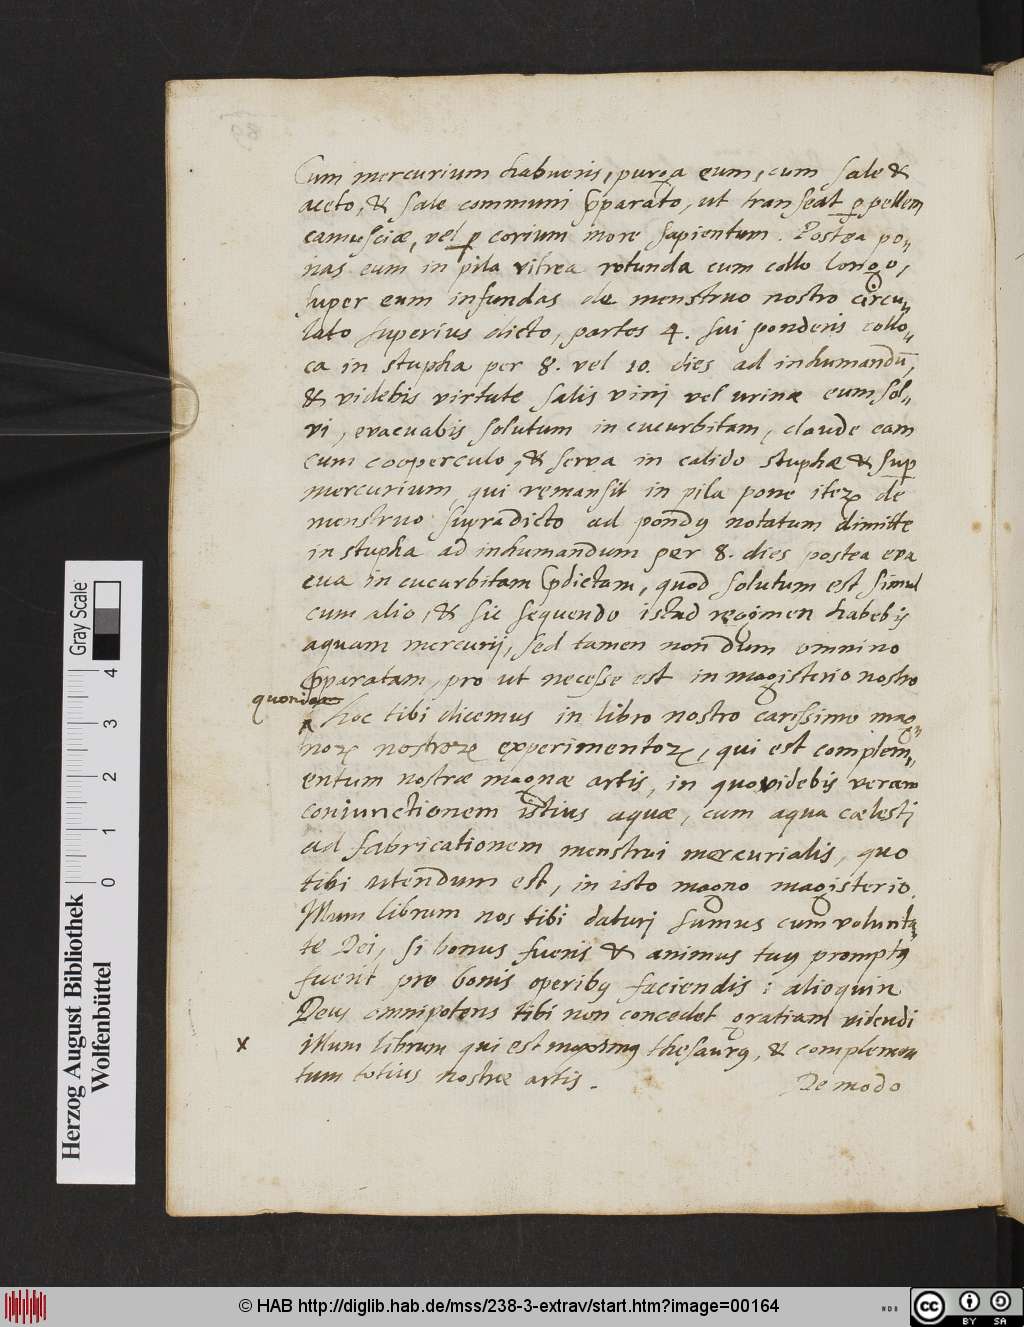 Cum mercurium habueris, purga eum, cum sale &
aceto, & sale communi pparato, ut transeat p pellem
camusciæ, vel p corium more sapientum. Postea po„
nas eum in pila vitrea rotunda cum collo longo,
super eum infundas de menstruo nostro circu„
lato superius dicto, partes 4. sui ponderis collo„
ca in stupha per 8. vel 10. dies ad inhumandū,
& videbis virtute salis vini vel urinæ eum sol„
vi, evacuabis solutum in cucurbitam, claude eam
cum cooperculo, & serva in calido stuphæ & sup
mercurium, qui remansit in pila pone iteꝝ de
menstruo supradicto ad pondꝯ notatum dimitte
in stupha ad inhumandum per 8. dies postea eva
cua in cucurbitam pdictam, quod solutum est simul
cum alio, & sic sequendo istud regimen habebis
aquam mercurij, sed tamen nondum omnino
pparatam, pro ut necesse est in magisterio nostro
quoniam
hoc tibi dicemus in libro nostro carissimo mag„
noꝝ nostroꝝ experimentoꝝ, qui est complem„
entum nostræ magnæ artis, in quo videbis veram
coniunctionem istius aquæ, cum aqua cælesti
ad fabricationem menstrui mercurialis, quo
tibi utendum est, in isto magno magisterio.
Illum librum nos tibi daturi sumus cum volunta„
te Dei, si bonus fueris & animus tuꝯ promptꝯ
fuerit pro bonis operibꝯ faciendis: alioquin
Deus omnipotens tibi non concedet gratiam videndi
x illum librum qui est maximꝯ thesaurꝯ, & complemen
tum totius nostræ artis.
De modo
Herzog August Bibliothek
Wolfenbüttel
0 1 2 3 4
Gray Scale
© HAB http://diglib.hab.de/mss/238-3-extrav/start.htm?image=00164
NDB
cc BY SA